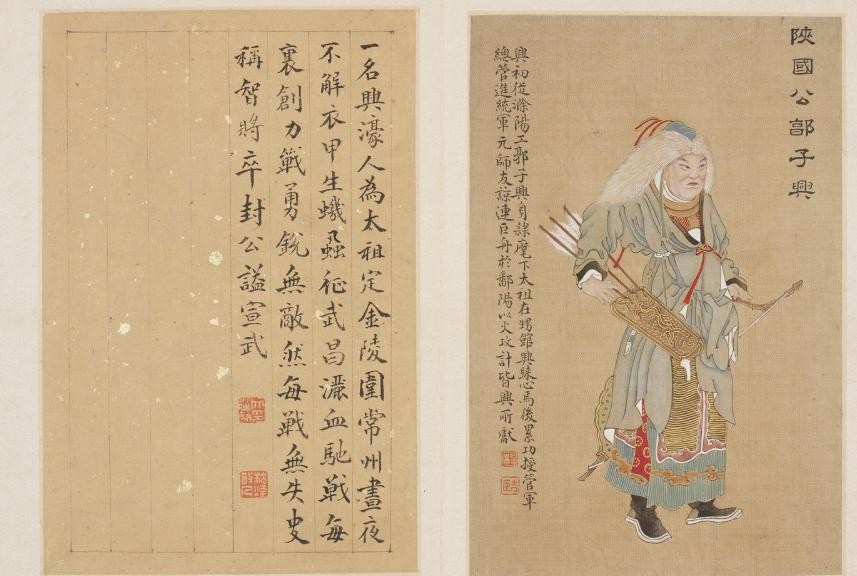 陝國公郭子興
興初從滁陽王郭子興自隸麾下太祖在甥館興歸心焉後累功授管軍
總管進統軍元帥友諒連巨舟於鄱陽以火攻計皆興所獻
一名興濠人為太祖定金陵圍常州晝夜
不解衣甲生蟣蝨征武昌灑血馳戰每
裹創力戰勇銳無敵然每戰無失史
稱智將卒封公謚宣武